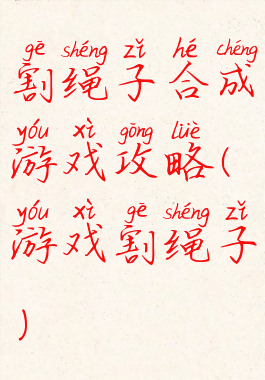 gē shéng zǐ hé chéng
割绳子合成
yóu xì gōng lüè
游戏攻略(
yóu xì gē shéng zǐ
游戏割绳子
)